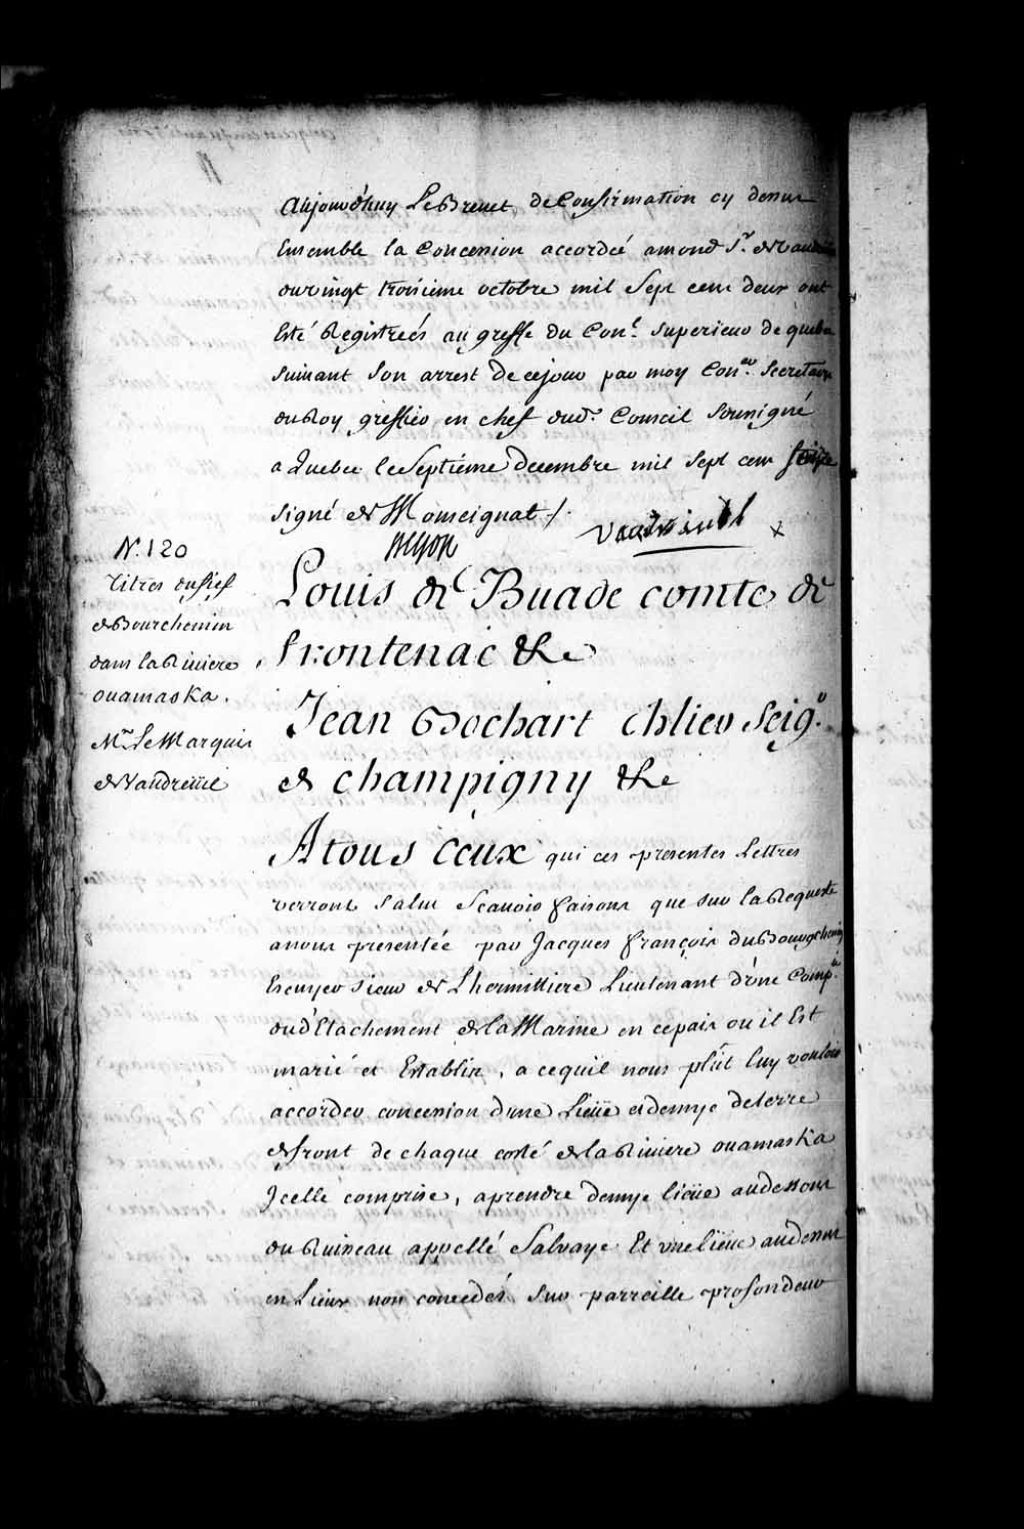 Aujourd'huy Le Brevet de Confirmation cy dessus
Ensemble la Concession accordeé amond Sr. de Vaudreüil
du vingt troisieme octobre mil Sept cens deux ont
Esté Registreés au greffe du Conel. superieur de quebec
suivant son arrest de cejour par moy Conser. secretaire
du Roy greffier en chef dud. Conseil Sousigné
a Quebec le Septiéme decembre mil Sept cens
signé de Monseignat /.
N.° 120
Titres du fief
de Bourchemin
dans la Riviere
ouamaska.
Mr. Le Marquis
de Vaudreüil
Louis de Buade comte de
frontenac &ca
Jean Bochart chlier Seigr.
de champigny &ca
A tous Ceux qui ces presentes Lettres
verront salut Scavoir faisons que sur la Requeste
anous presentée par Jacques françois du Bourgchemin
Escuyer sieur de Lhermittiere Lieutenant d'une Compie.
du d'Etachement de la Marine en cepais ou il Est
marié et Establis, a cequil nous plût luy vouloir
accorder concession dune Lieüe et demye de terre
de front de chaque costé de la Riviere ouamaska
Jcelle comprise, aprendre demye lieüe audessous
du Ruisseau appellé Salvaye Et une lieüe audessus
en Lieux non concedés sur parreille profondeur